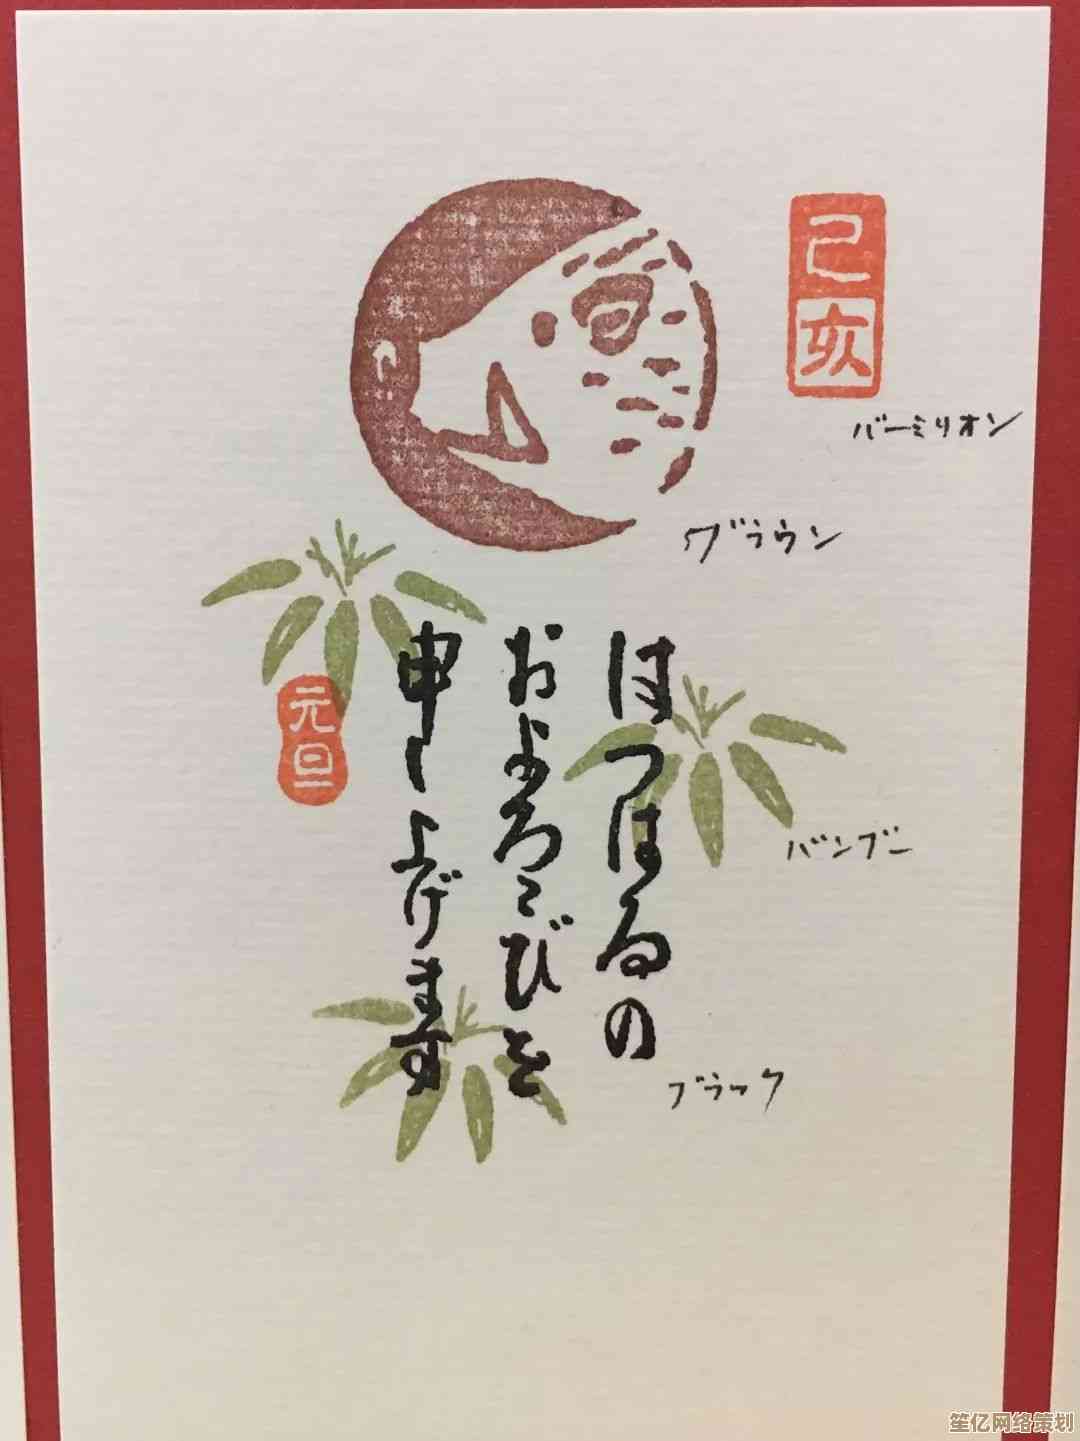 己亥
バーミリオン
ブラウン
はつはるの
およろこびを
申し上げます
元旦
バンブー
ブラック
笙亿网络策划